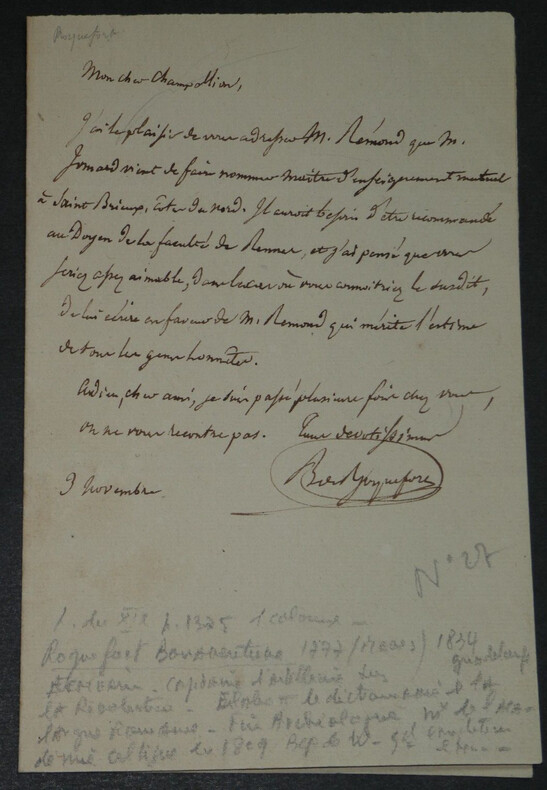 Roquefort
Mon cher Champollion,
J'ai le plaisir de vous adresser M. Rémond que M.
Jomard vient de faire nommer maitre d'enseignement mutuel
à Saint Brieux, Côtes du nord. Il auroit besoin d'être recommandé
au Doyen de la faculté de Rennes, et j'ai pensé que vous
seriez assez aimable, dans le cas où vous connoitriez le susdit,
de lui écrire en faveur de M. Remond qui mérite l'estime
de tous les gens honnêtes.
Adieu, cher ami, je suis passé plusieurs fois chez vous,
on ne vous rencontre pas. Tuus devotissimus
B de Roquefort
9 novembre
N° 27
l. du XIXe p. 1325 1 colonne
Roquefort Bonaventure 1777 (Mons) 1834 guadeloupe
capitaine d'artillerie
la Révolution - le dictionnaire de la
langue Romane - Archéologue de l'Aca
de mie celtique de 1809